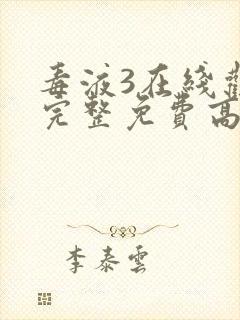 毒液3在线
完整免費高
李泰雲